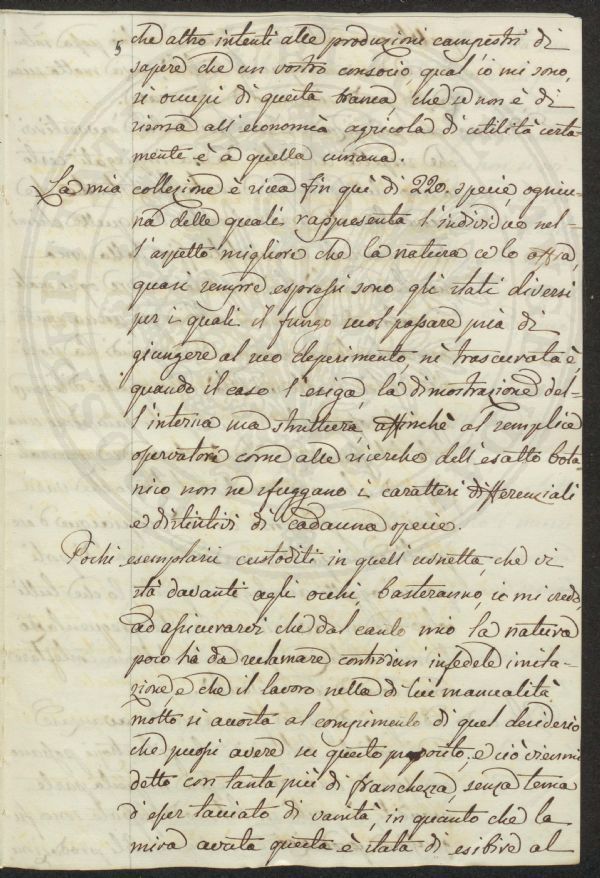 5 che altro intenti alle produzioni campestri di
sapere che un vostro consocio qual io mi sono,
si occupi di questa branca che se non è di
risorsa all'economia agricola di utilità certa-
mente è a quella umana.
La mia collezione è ricca fin quì di 220. specie, ogniu-
na delle quali rappresenta l'individuo nel-
l'aspetto migliore che la natura ce lo offra,
quasi sempre espressi sono gli stati diversi
per i quali il fungo suol passare pria di
giungere al suo deperimento, nè trascurata è,
quando il caso l'esiga, la dimostrazione del-
l'interna sua struttura, affinchè al semplice
osservatore come alle ricerche dell'esatto bota-
nico non ne sfuggano i caratteri differenziali
e distintivi di cadauna specie.
Pochi esemplarii custoditi in quell'urnetta, che vi
stà davanti agli occhi, basteranno, io mi credo,
ad assicurarvi che dal canto mio la natura
poco hà da reclamare contro d'un infedele imita-
zione e che il lavoro nella di lui manualità
molto si accosta al compimento di quel desiderio
che puossi avere su questo proposito; e ciò viemmi
detto con tanta più di franchezza, senza tema
d'esser tacciato di vanità, in quanto che la
mira avuta questa è stata di esibire al